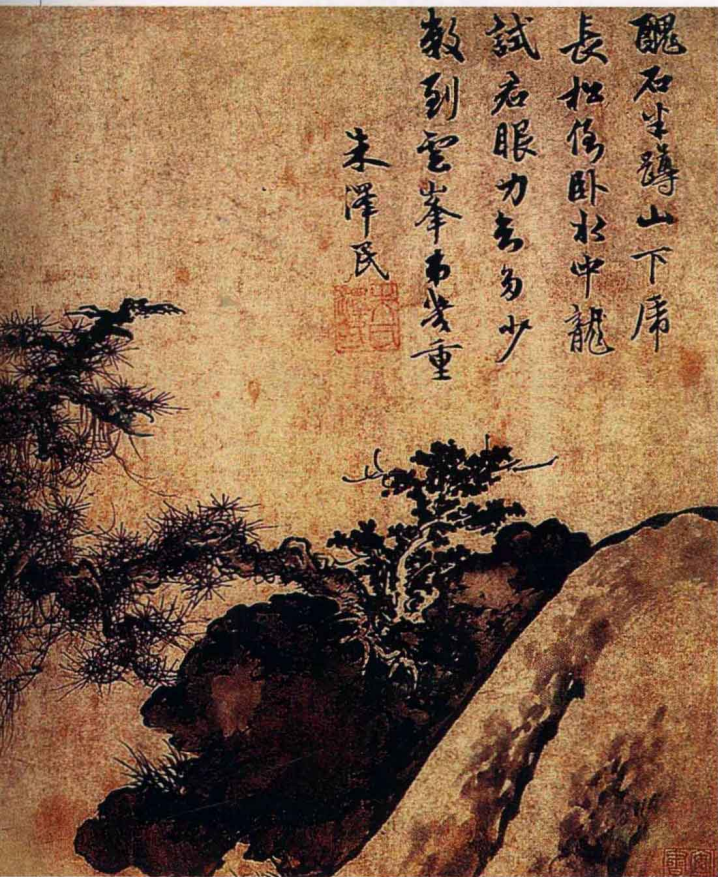 醜石半蹲山下虎
長松倒卧水中龍
試君眼力知多少
數到雲峯第幾重
朱澤民
朱氏澤民